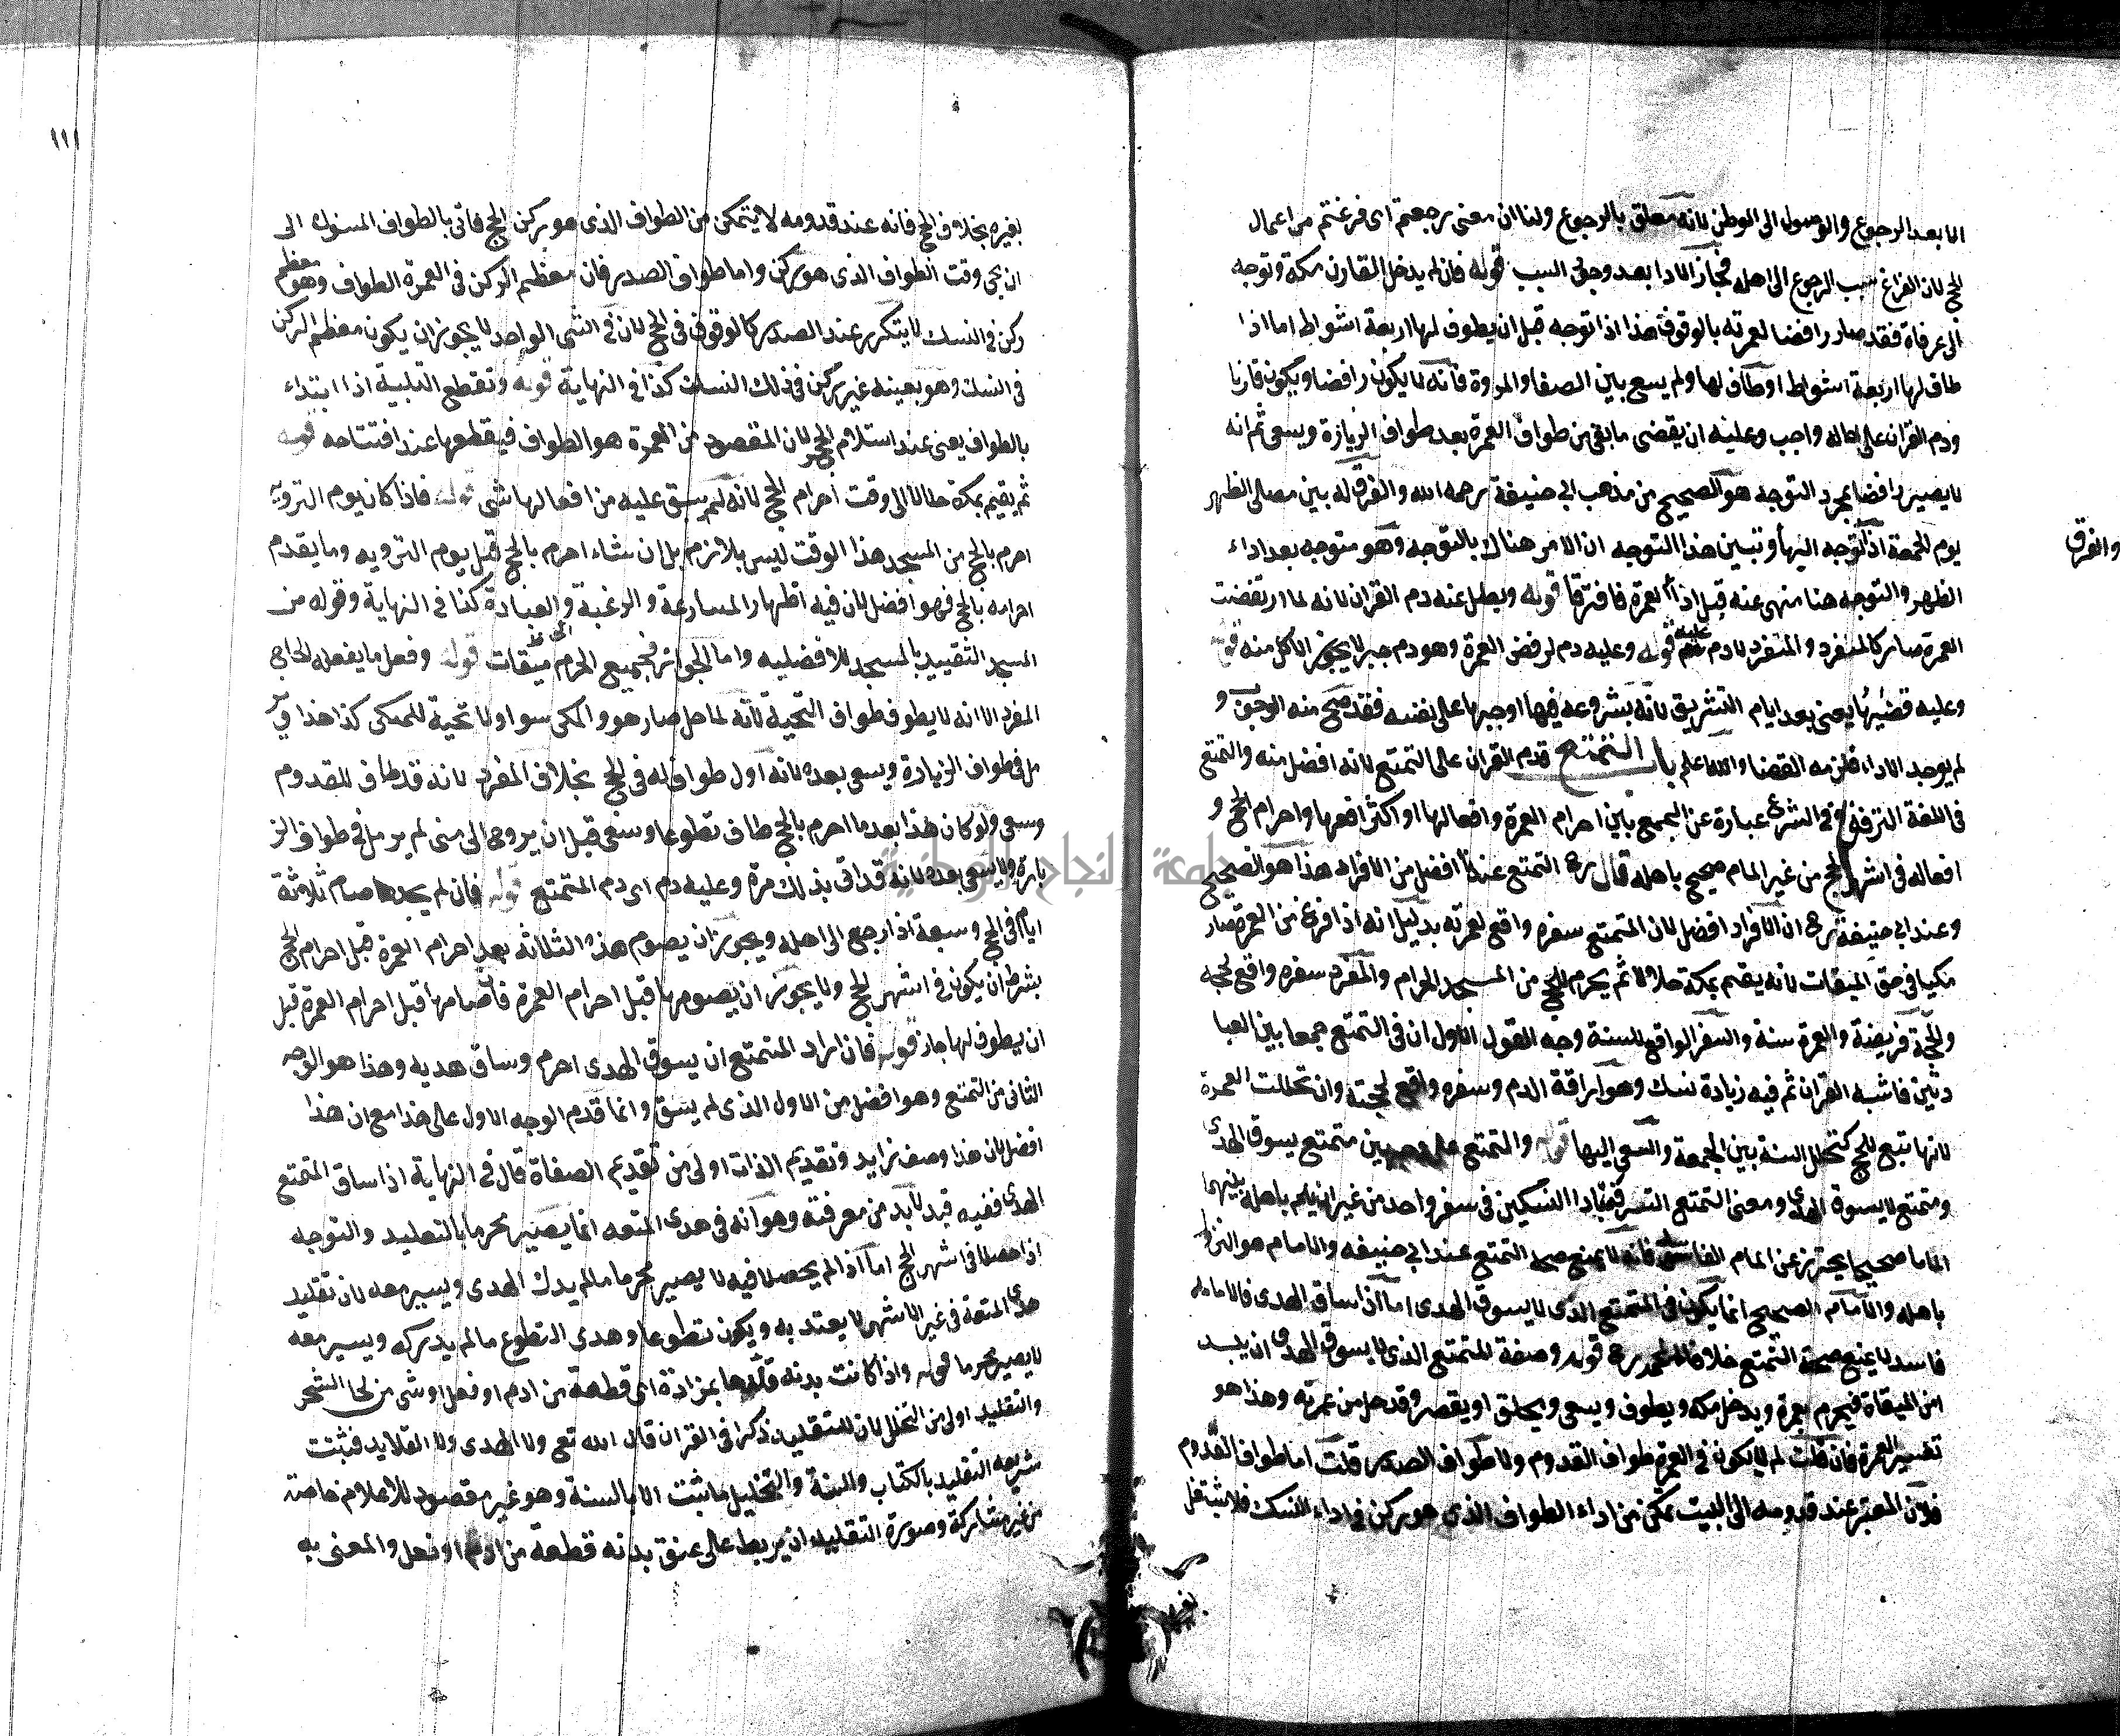 الا بعد الرجوع والوصول الى الوطن لانه معلق بالرجوع ولنا ان معنى رجعتم اى فرغتم من اعمال
الحج لان الفراغ سبب الرجوع الى اهله فجاز الادا بعد وجود السبب قوله فان لم يدخل القارن مكة وتوجه
الى عرفاة فقد صار رافضا لعمرته بالوقوف هذا اذا توجه قبل ان يطوف لها اربعة اشواط اما اذا
طاف لها اربعة اشواط او طاف لها ولم يسع بين الصفا والمروة فانه لا يكون رافضا ويكون قارنا
ودم القران على حاله واجب وعليه ان يقضى ما بقى من طواف العمرة بعد طواف الزيارة ويسعى ثم انه
لا يصير رافضا بمجرد التوجه هو الصحيح من مذهب ابى حنيفة رحمه الله والفرق له بين مصلى الظهر
يوم الجمعة اذا توجه اليها وبين هذا التوجه ان الامر هناك بالتوجه وهو متوجه بعد اداء
والفرق
الظهر والتوجه هنا منهى عنه قبل اذا العمرة فافترقا قوله وبطل عنه دم القران لانه لما ارتفضت
العمرة صار كالمنفرد والمنفرد لا دم عليه قوله وعليه دم لرفض العمرة وهو دم جبر لا يجوز الاكل منه قوله
وعليه قضيها يعنى بعد ايام التشريق لانه بشروعه فيها اوجبها على نفسه فقد صح منه الوجوب و
لم يوجد الاداء فلزمه القضا والله اعلم باب التمتع قدم القران على التمتع لانه افضل منه والتمتع
فى اللغة الترفق وفى الشرع عبارة عن الجمع بين احرام العمرة وافعالها او اكثر افعالها واحرام الحج و
افعاله فى اشهر الحج من غير المام صحيح باهله قال رح التمتع عندنا افضل من الافراد هذا هو الصحيح
وعند ابى حنيفة رح ان الافراد افضل لان المتمتع سفره واقع لعمرته بدليل انه اذا فرغ من العمرة صار
مكيا فى حق الميقات لانه يقيم بمكة حلالا ثم يحرم للحج من المسجد الحرام والمفرد سفره واقع لحجه
والحجة فريضة والعمرة سنة والسفر الواقع للسنة وجه القول الاول ان فى التمتع جمعا بين العبا
دتين فاشبه القران ثم فيه زيادة نسك وهو اراقة الدم وسفره واقع لحجته وان تخللت العمرة
لانها تبع للحج كتخلل السنة بين الجمعة والسعى اليها قوله والتمتع على وجهين متمتع يسوق الهدى
ومتمتع لا يسوق الهدى ومعنى التمتع الترفق باداا النسكين فى سفر واحد من غير ان يلم باهله بينهما
الماما صحيحا يحترز عن المام الفاسد فانه لا يمنع صحة التمتع عند ابى حنيفه والامام هو النزول
باهله والامام الصحيح انما يكون فى المتمتع الذى لا يسوق الهدى اما اذا ساق الهدى فالامامه
فاسد لا يمنع صحة التمتع خلافا لمحمد رح قوله وصفة المتمتع الذى لا يسوق الهدى ان يبتد
امن الميقاة فيحرم بعمرة ويدخل مكة ويطوف ويسعى ويحلق او يقصر وقد حل من عمرته وهذا هو
تفسير العمرة فان قلت لم لا يكون فى العمرة طواف القدوم ولا طواف الصدر قلت اما طواف القدوم
فلان المعتمر عند قدومه الى البيت تمكن من اداء الطواف الذى هو ركن فى اداء النسك فلا يشتغل
بغيره
١١١
بغيره بخلاف الحج فانه عند قدومه لا يتمكن من الطواف الذى هو ركن الحج فاتى بالطواف المسنون الى
ان يجى وقت الطواف الذى هو ركن واما طواف الصدر فان معظم الركن فى العمرة الطواف وهو معظم
ركن فى النسك لا يتكرر عند الصدر كالوقوف فى الحج لان فى الشى الواحد لا يجوز ان يكون معظم الركن
فى النسك وهو بعينه غير ركن فى ذلك النسك كذا فى النهاية قوله وتقطع التلبية اذا ابتداء
بالطواف يعنى عند استلام الحجر لان المقصود من العمرة هو الطواف فيقطعها عند افتتاحه قوله
ثم يقيم بمكة حلالا الى وقت احرام الحج لانه لم يبق عليه من افعالها شى قوله فاذا كان يوم التروية
احرم بالحج من المسجد هذا الوقت ليس بلازم بل ان شاء احرم بالحج قبل يوم الترويه وما يقدم
احرامه بالحج فهو افضل لان فيه اظهار المسارعة والرغبة والعبادة كذا فى النهاية وقوله من
المسجد التقييد بالمسجد للافضليه واما الجواز فجميع الحرم ميقات قوله وفعل ما يفعله الحاج
المفرد الا انه لا يطوف طواف التحية لانه لما حل صار هو والمكى سوا ولا تحية للمكى كذا هذا وير
مل فى طواف الزيادة ويسعى بعده لانه اول طواف له فى الحج بخلاف المفرد لانه قد طاف للقدوم
وسعى ولو كان هذا بعد ما احرم بالحج طاف تطوعا وسعى قبل ان يروح الى منى لم يرمل فى طواف الز
يارة ولا يسعى بعده لانه قد اتى بذلك مرة وعليه دم اى دم المتمتع قوله فان لم يجدها صام ثلاثة
ايام فى الحج وسبعة اذا رجع الى اهله ويجوز ان يصوم هذه الثلاثه بعد احرام العمرة قبل احرام الحج
بشرط ان يكون فى اشهر الحج ولا يجوز ان يصومها قبل احرام العمرة فان صامها قبل احرام العمرة قبل
ان يطوف لها جاز قوله فان اراد المتمتع ان يسوق الهدى احرم وساق هديه وهذا هو الوجه
الثانى من التمتع وهو افضل من الاول الذى لم يسق وانما قدم الوجه الاول على هذا مع ان هذا
افضل لان هذا وصف زايد وتقديم الذات اولى من تقديم الصفاة قال فى النهاية اذا ساق المتمتع
الهدى ففيه قيد لا بد من معرفته وهو انه فى هدى المتعه انما يصير محرما بالتقليد والتوجه
اذا حصلا فى اشهر الحج اما اذا لم يحصلا فيه لا يصير محرما ما لم يدرك الهدى ويسير معه لان تقليد
هدى المتعة فى غير الاشهر لا يعتد به ويكون تطوعا وهدى التطوع ما لم يدركه ويسير معه
لا يصير محرما قوله واذا كانت بدنه قلدها بمزادة اى قطعة من ادم او نعل او شى من لحا الشجر
والتقليد اولى من التجلل لان للتقليد ذكرا فى القران قال الله تع ولا الهدى ولا القلايد فثبتت
شريعه التقليد بالكتاب والسنة والتجليل ما ثبت الا بالسنة وهو غير مقصود للاعلام خاصة
من غير مشاركة وصورة التقليد ان يربط على عنق بدنه قطعة من ادم او نعل والمعنى به
جامعة النجاح الوطنية